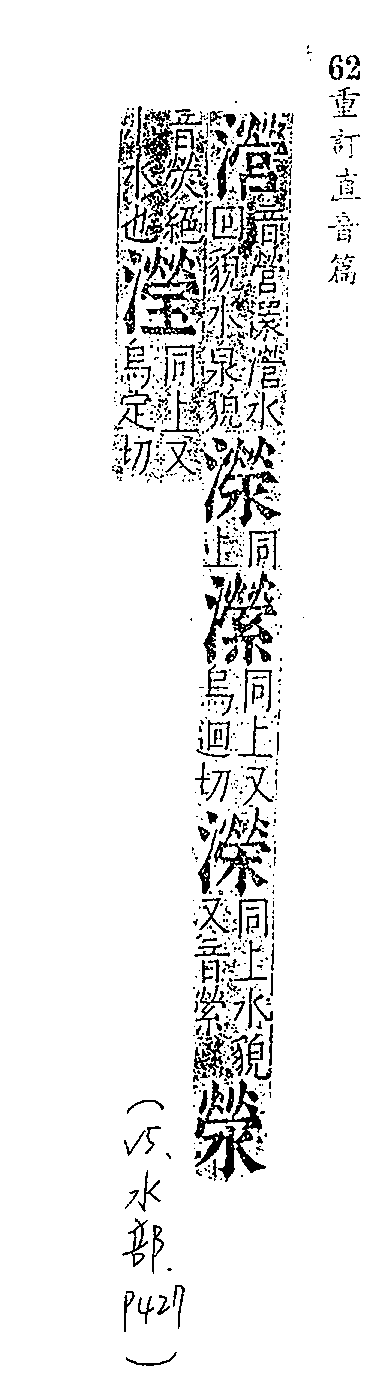 62重訂直音篇
瀯音營瀯水回貌水泉貌濴同上瀠同上又烏迥切濚同上水貌又音縈滎
音熒絕小水也瀅同上又烏定切
(V5.水部.P427)